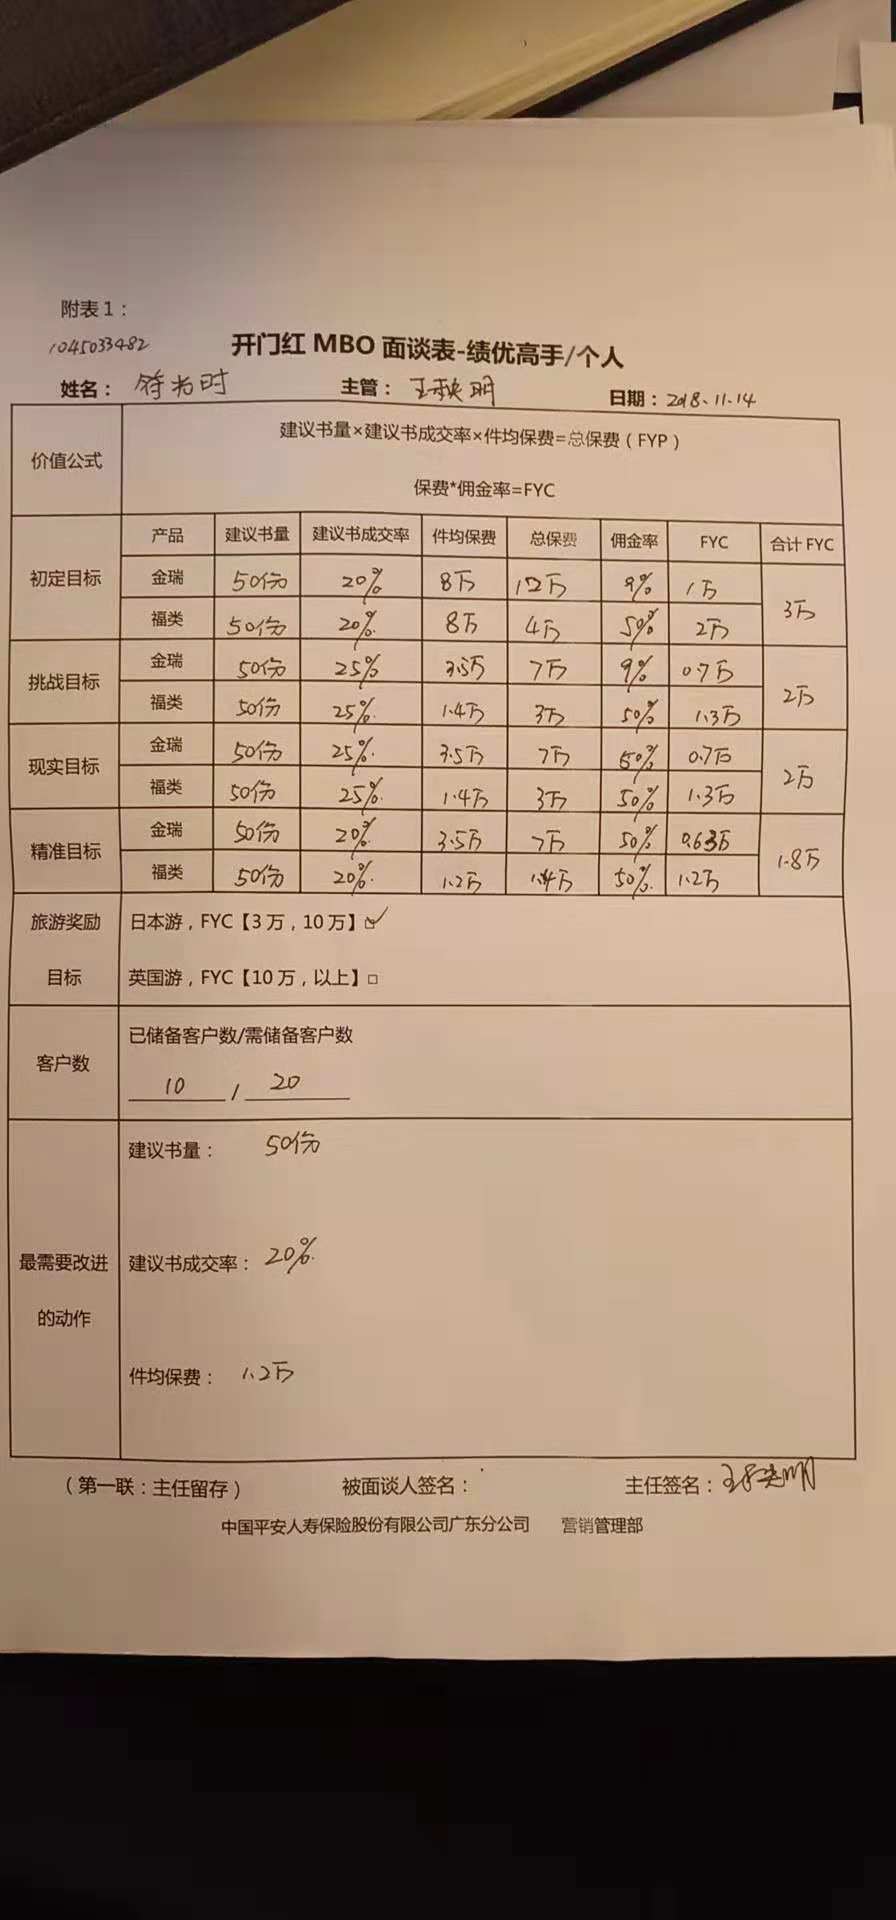 附表1：
1045033482
开门红 MBO 面谈表-绩优高手/个人
姓名： 主管： 王秧明 日期：2018.11.14
价值公式
建议书量×建议书成交率×件均保费=总保费（FYP）
保费*佣金率=FYC
初定目标 产品 建议书量 建议书成交率 件均保费 总保费 佣金率 FYC 合计 FYC
金瑞 50份 20% 8万 12万 9% 1万 3万
福类 50份 20% 8万 4万 50% 2万
挑战目标 金瑞 50份 25% 3.5万 7万 9% 0.7万 2万
福类 50份 25% 1.4万 3万 50% 1.3万
现实目标 金瑞 50份 25% 3.5万 7万 50% 0.7万 2万
福类 50份 25% 1.4万 3万 50% 1.3万
精准目标 金瑞 50份 20% 3.5万 7万 50% 0.63万 1.8万
福类 50份 20% 1.2万 1.4万 50% 1.2万
旅游奖励
目标
日本游，FYC【3万，10万】☑
英国游，FYC【10万，以上】□
客户数
已储备客户数/需储备客户数
10 / 20
最需要改进
的动作
建议书量： 50份
建议书成交率： 20%
件均保费： 1.2万
（第一联：主任留存） 被面谈人签名： 主任签名：王秧明
中国平安人寿保险股份有限公司广东分公司 营销管理部